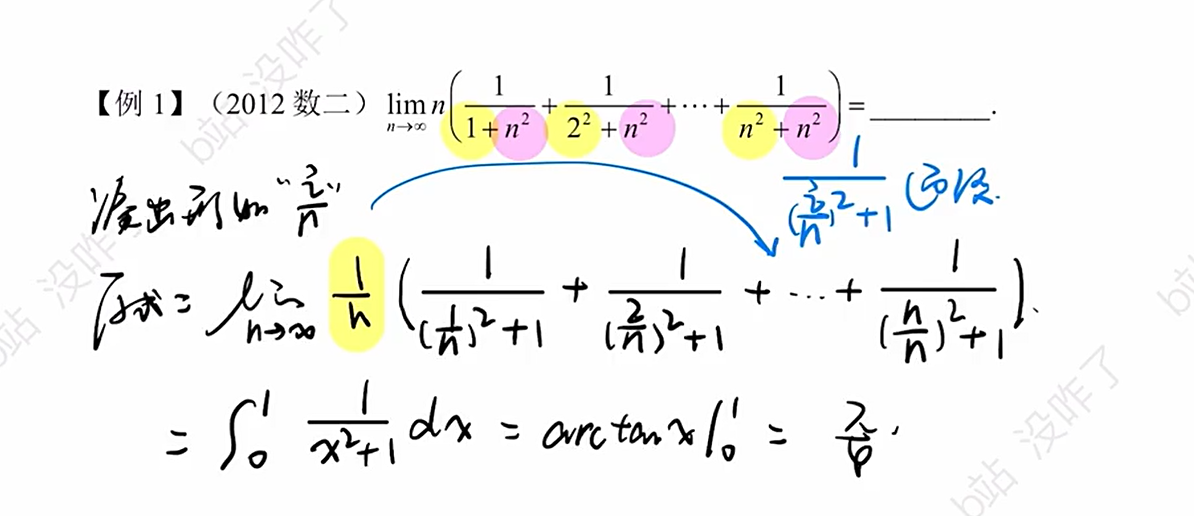 【例 1】（2012 数二）lim n→∞ n(1/(1+n²) + 1/(2²+n²) + ⋯ + 1/(n²+n²)) = ________.
凑出形如 "i/n"
1/((i/n)²+1)
原式 = lim n→∞ 1/n (1/((1/n)²+1) + 1/((2/n)²+1) + ⋯ + 1/((n/n)²+1)).
= ∫₀¹ 1/(x²+1) dx = arctan x |₀¹ = π/4.
b站 没咋了
b站 没咋了
b站 没咋了